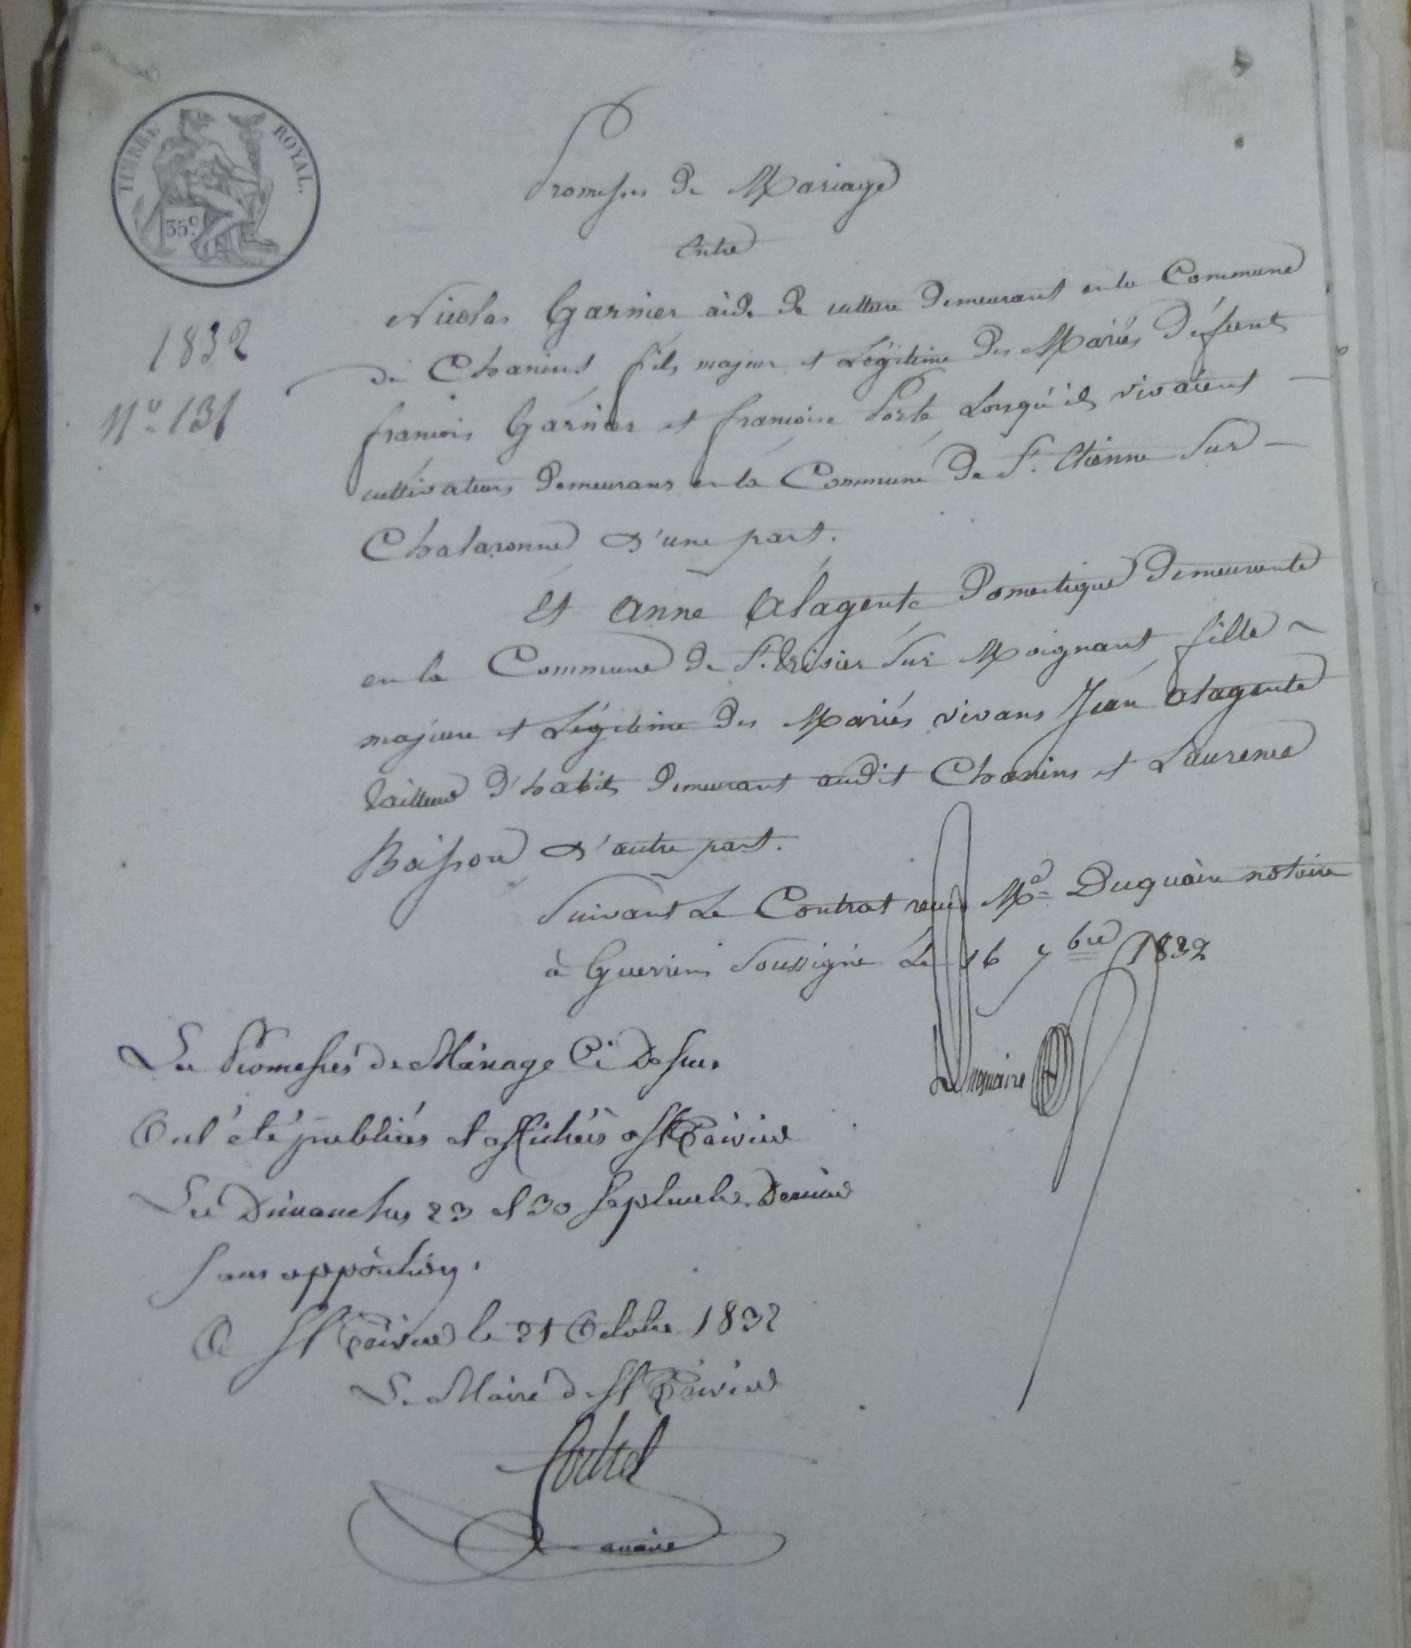 TIMBRE ROYAL.
35c
1832
N° 131
Promesses de Mariage
Entre
Nicolas Garnier aide de culture demeurant en la Commune
de Chanins fils majeur et Légitime des Mariés défunt
francois Garnier et francoise Porte Lorsqu'ils vivaient
cultivateurs demeurans en la Commune de St. Etienne Sur
Chalaronne d'une part.
Et Anne Alagente Domestique demeurante
en la Commune de St. trivier Sur Moignant fille
majeure et Légitime des Mariés vivans Jean Alagente
tailleur d'habits demeurant audit Chanins et Laurence
Boisson d'autre part.
Suivant Le Contrat recu Me Duquaire notaire
à Guerreins Soussigné Le 16 7bre 1832
Duquaire
Les Promesses de Mariage Ci Dessus
Ont été publiées et affichées a St Trivier
Les Dimanches 23 et 30 Septembre Dernier
Sans opposition.
A St Trivier le 21 Octobre 1832
Le Maire de St Trivier
maire